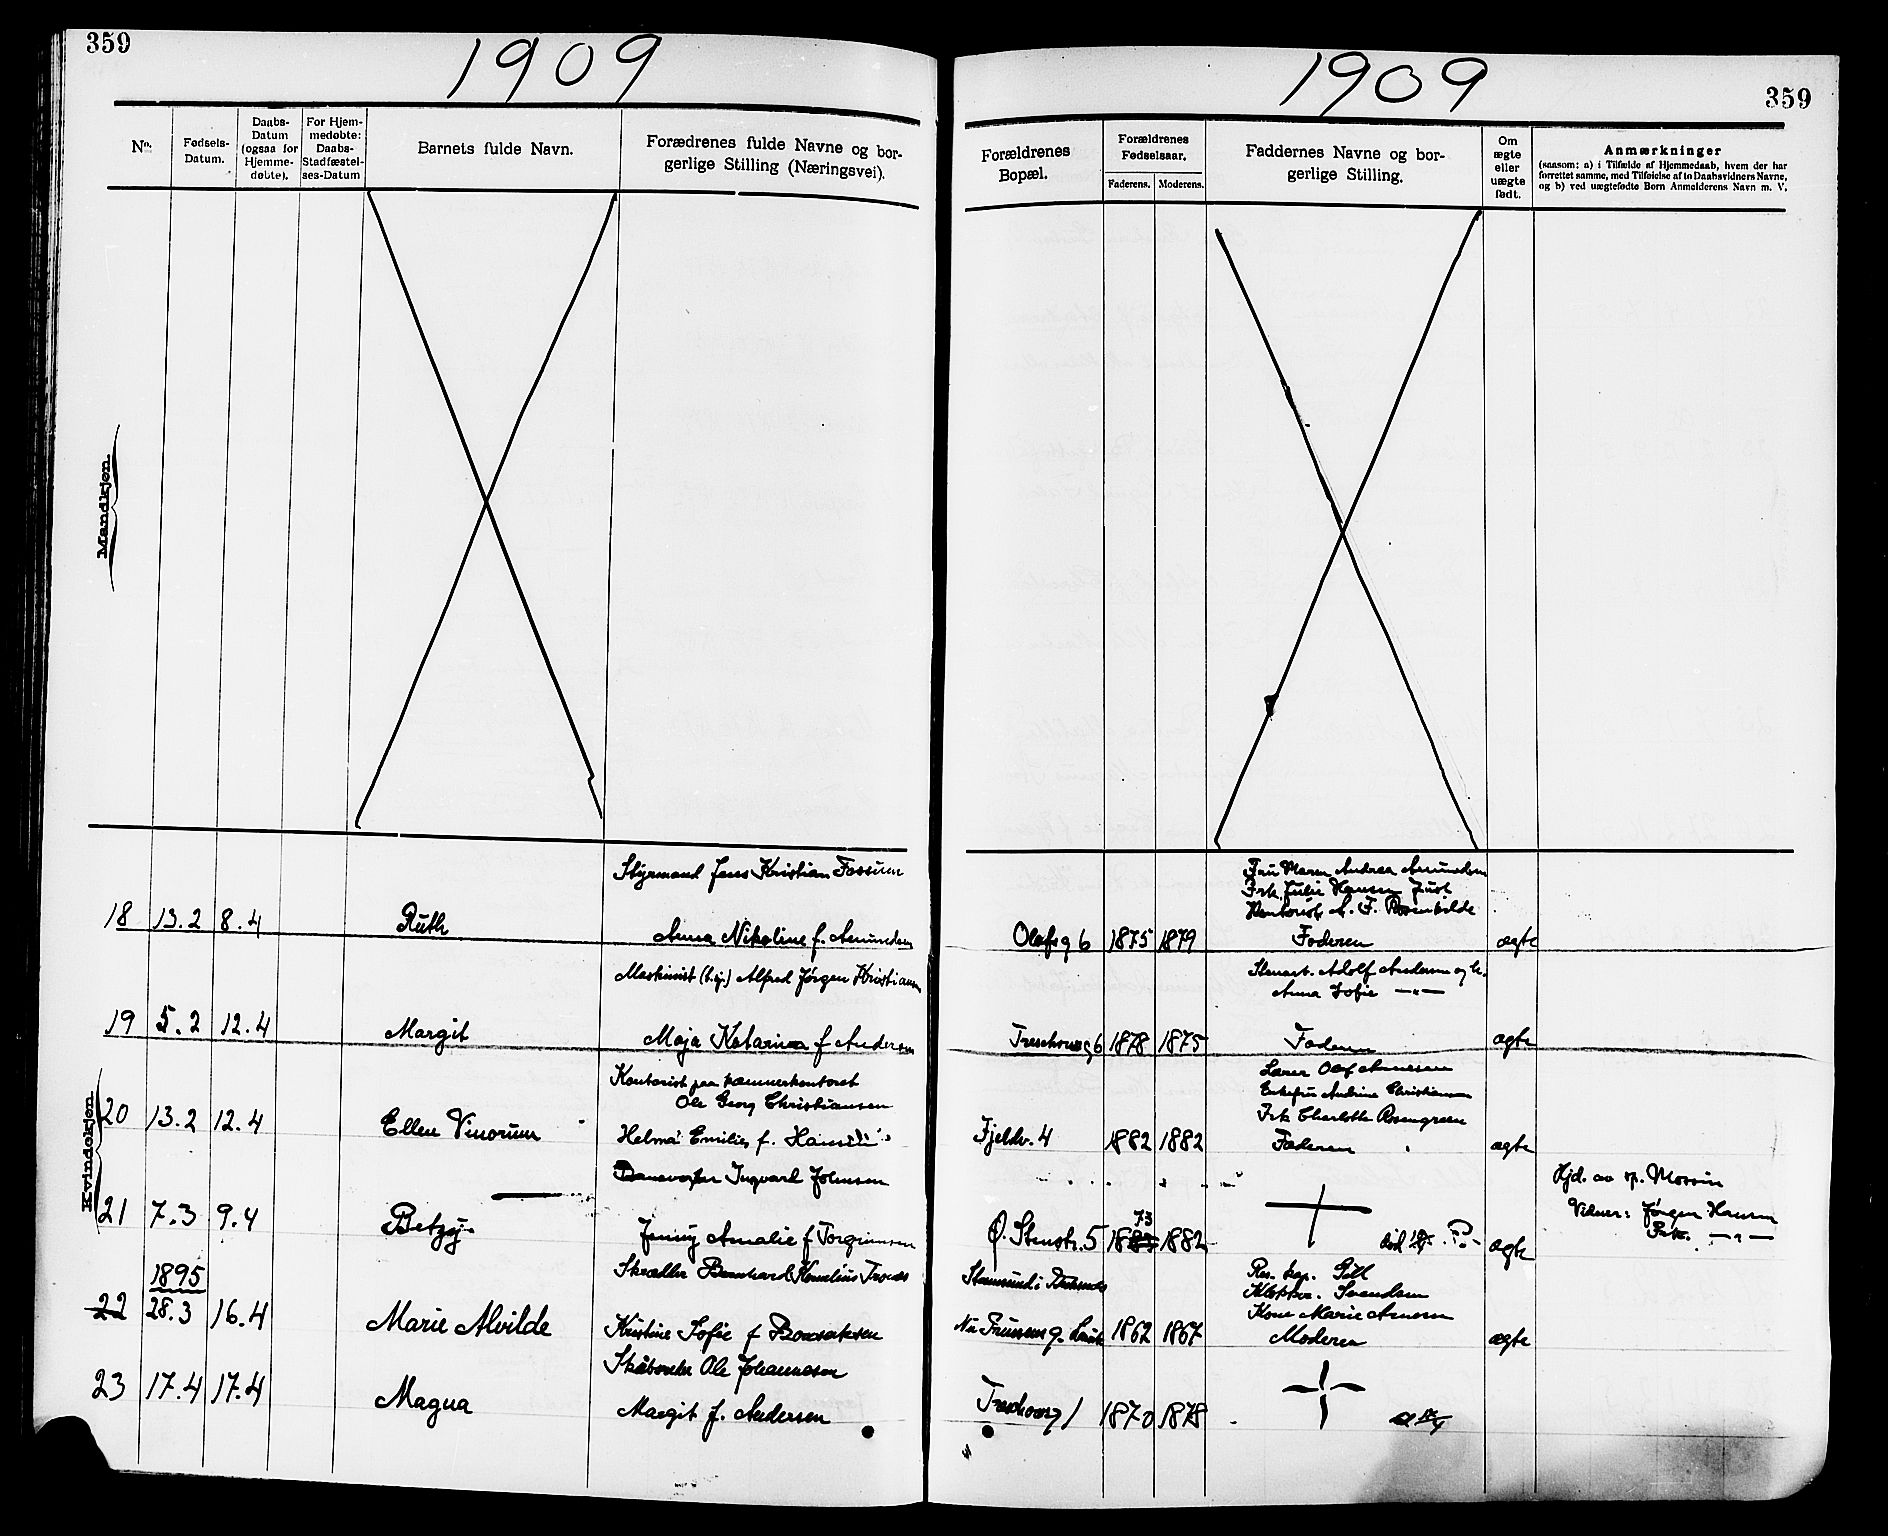 359
1909
No.
Fødsels-
Datum.
Daabs-
Datum
(ogsaa for
Hjemme-
døbte).
For Hjem-
medøbte:
Daabs-
Stadfæstel-
ses-Datum
Barnets fulde Navn.
Forædrenes fulde Navne og bor-
gerlige Stilling (Næringsvei).
Mandkjøn.
Styrmand Jens Kristian Fossum
18 13.2 8.4 Ruth
Anna Nikoline f. Amundsen
Maskinist Alfred Jørgen Kristiansen
19 5.2 12.4 Margit
Maja Katarina f Andersen
Kvindekjøn
Kontorist paa kæmnerkontoret
Ole Georg Christiansen
20 13.2 12.4 Ellen Vinorum
Helma Emilie f. Hansen
Ingvart Johnsen
21 7.3 9.4 Betzy
Jenny Amalie f Torgrimsen
1895
Skrædder Bernhard Kornelius
22 28.3 16.4 Marie Alvilde
Kristine Sofie f
Ole Johannesen
23 17.4 17.4 Magna
Margit f. Andersen
1909
359
Forældrenes
Bopæl.
Forældrenes
Fødselsaar.
Faderens. Moderens.
Faddernes Navne og bor-
gerlige Stilling.
Om
ægte
eller
uægte
født.
Anmærkninger
(saasom: a) i Tilfælde af Hjemmedaab, hvem der har
forrettet samme, med Tilføielse af to Daabsvidners Navne,
og b) ved uægtefødte Børn Anmelderens Navn m. V.
Fru Maren Andrea Amundsen
Frk. Julie Hansen
Kontorist A. F. Rosenkilde
Olafsg 6 1875 1879 Faderen ægte
Stuert. Adolf Andersen og h.
Anna Sofie —"—
Treschowsg 6 1878 1875 Faderen ægte
Lærer Olaf Arnesen
Enkefru Andrine Christiansen
Frk Charlotte Rosengreen
Fjeldv. 4 1882 1882 Faderen ægte
Hjd. av
Vidner: Jørgen Hansen
Frk. —"—
73
Ø. Stenstr. 5 1882 død ægte
Res. kap. Gill
Klokker. Svendsen
Kone Marie Arnesen
1862 1867 Moderen ægte
Treschowsg 1 1870 1878